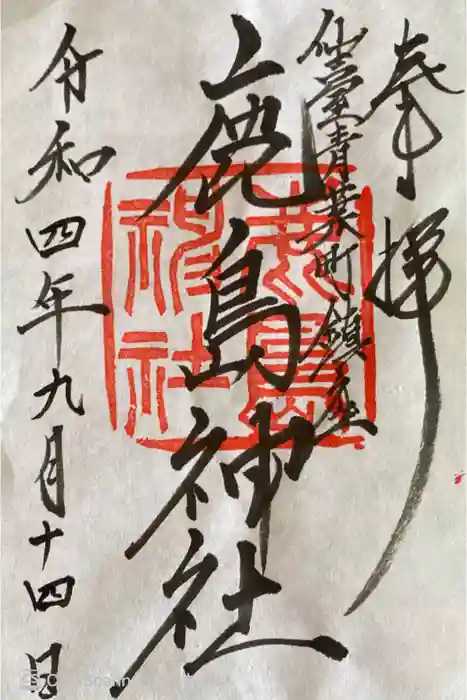 奉拝
仙臺青葉町鎮座
鹿島神社
鹿島神社
令和四年九月十四日